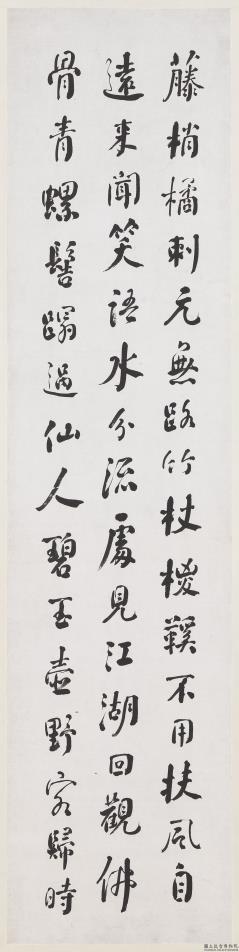 藤梢橘刺元無路竹杖椶鞵不用扶風自
遠来聞笑語水分流處見江湖回觀佛
骨青螺髻蹋過仙人碧玉壺野客歸時
國立故宮博物院